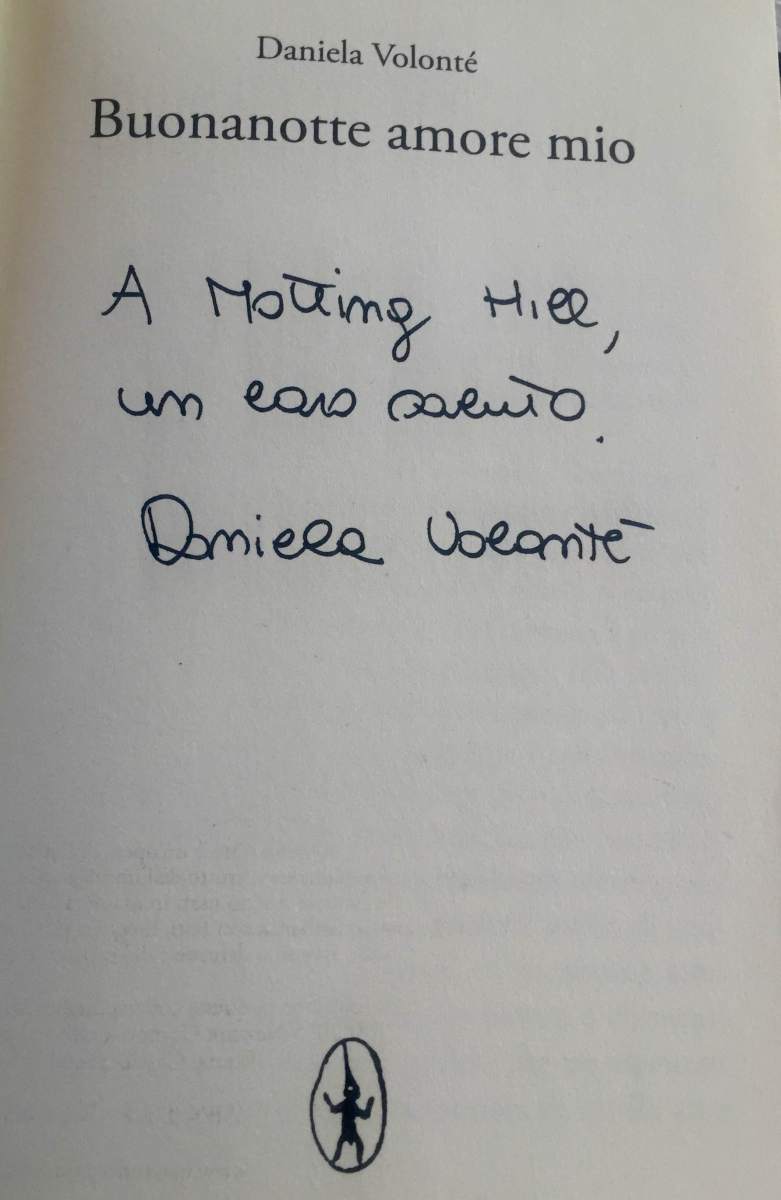 Daniela Volonté
Buonanotte amore mio
A Notting Hill,
un caro saluto.
Daniela Volonté